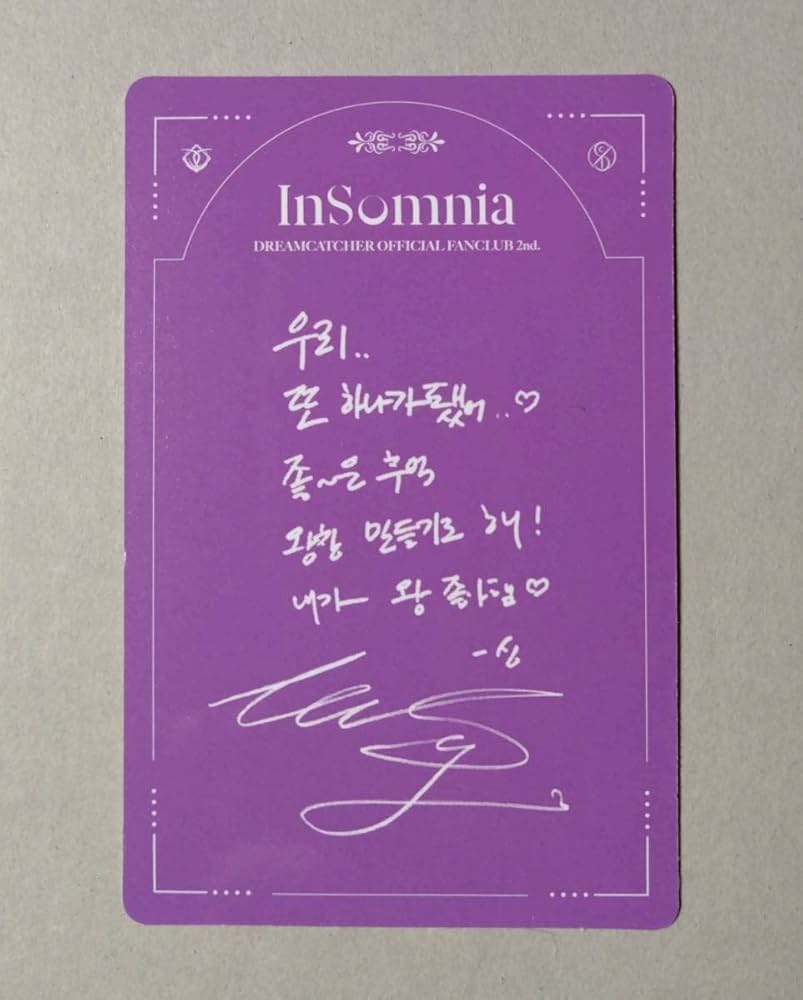 InSomnia
DREAMCATCHER OFFICIAL FANCLUB 2nd.
우리..
또 하나가 됐어..♡
좋~은 추억
왕창 만들기로 해!
내가 왕 좋아해♡
-싱